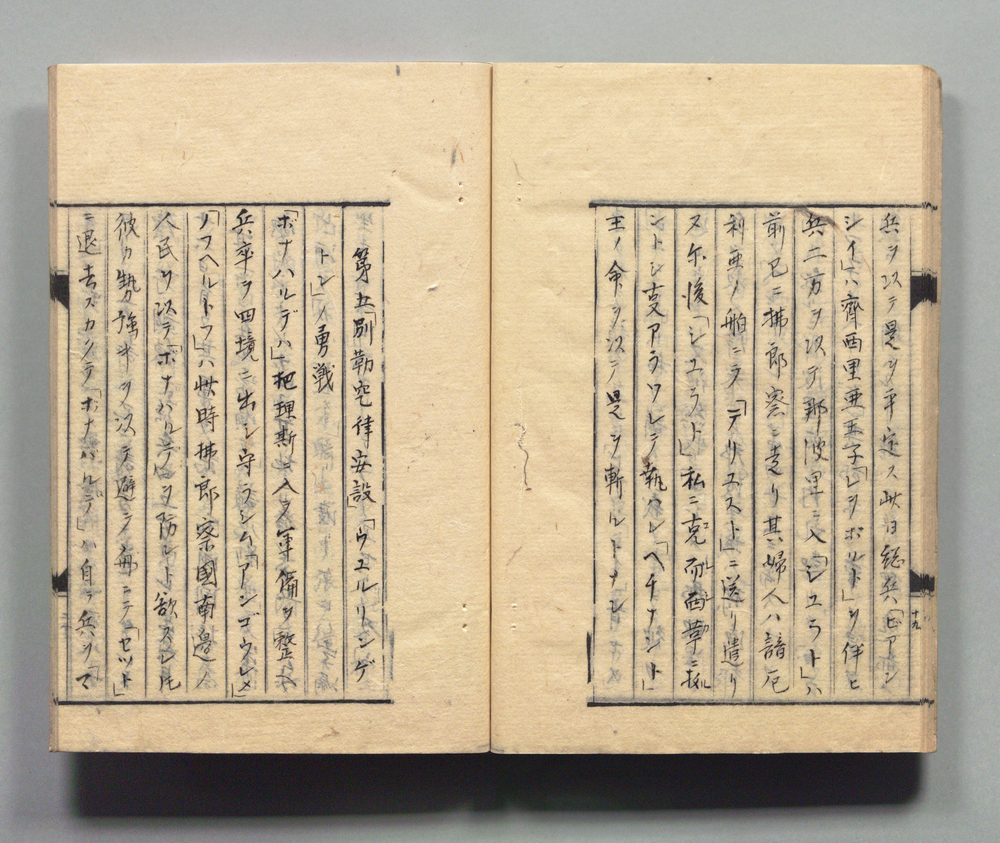 兵ヲ以テ是ヲ平定ス此日総兵「ビアン
シイ」ハ齊西里亜王子「レヲポルト」ヲ伴ヒ
兵二万ヲ以テ那波里ニ入「シユラト」ハ
前已ニ拂郎察ニ走リ其婦人ハ諳厄
利亜ノ舶ニテ「テリエスト」ニ送リ遣リ
又尓後「シユラト」私ニ克而西革ニ拠ラ
ントシ支アラワレテ執ハレ「ヘチナント」
王ノ命ヲ以テ是ヲ斬ルトナン
第五「別勒空律安設」「ウエルリンゲ
トン」勇戦
「ボナハルデハ」把理斯ニ入テ軍備ヲ整ヘ
兵卒ヲ四境ニ出シ守ラシム「アンゴウレメ」
「ソフヘルトフ」ハ此時拂郎察國南邊ノ
人民ヲ以テ「ボナパルテ」ヲ防レト欲スレ𪜈
彼カ勢強キヲ以テ避テ舟ニテ「セツト」
ニ退去スカクテ「ボナパルデ」ハ自ラ兵ヲ「マ
十九